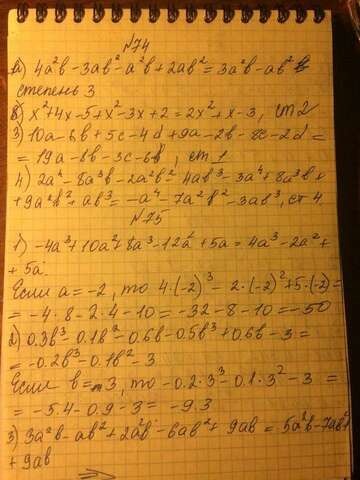 №74
1) 4a²b - 3ab² - a²b + 2ab² = 3a²b - ab²
степень 3
2) x² + 4x - 5 + x² - 3x + 2 = 2x² + x - 3, ст 2
3) 10a - 6b + 5c - 4d + 9a - 2b - 8c - 2d =
= 19a - 8b - 3c - 6d, ст 1
4) 2a⁴ - 8a³b - 2a²b² - 4ab³ - 3a⁴ + 8a³b +
+ 9a²b² + ab³ = -a⁴ - 7a²b² - 3ab³, ст 4.
№75
1) -4a³ + 10a² + 8a³ - 12a² + 5a = 4a³ - 2a² +
+ 5a.
Если a = -2, то 4·(-2)³ - 2·(-2)² + 5·(-2) =
= -4·8 - 2·4 - 10 = -32 - 8 - 10 = -50
2) 0.3b³ - 0.1b² - 0.6b - 0.5b³ + 0.6b - 3 =
= -0.2b³ - 0.1b² - 3
Если b = 3, то -0.2·3³ - 0.1·3² - 3 =
= -5.4 - 0.9 - 3 = -9.3
3) 3a²b - ab² + 2a²b - 6ab² + 9ab = 5a²b - 7ab² +
+ 9ab